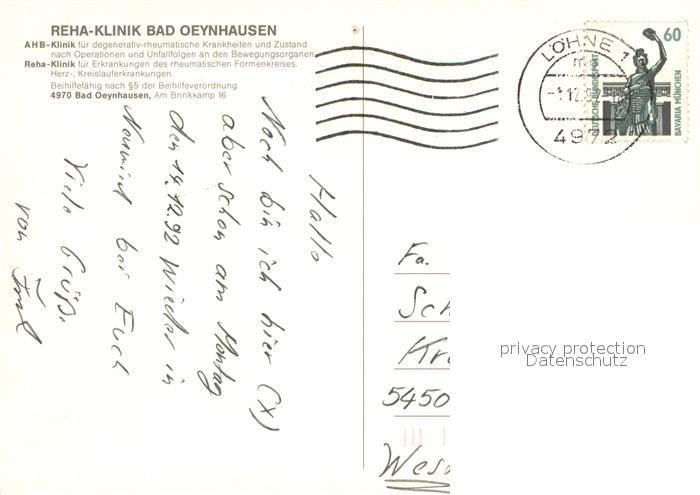 REHA-KLINIK BAD OEYNHAUSEN
AHB-Klinik für degenerativ-rheumatische Krankheiten und Zustand
nach Operationen und Unfallfolgen an den Bewegungsorganen.
Reha-Klinik für Erkrankungen des rheumatischen Formenkreises.
Herz-, Kreislauferkrankungen.
Beihilfefähig nach §5 der Beihilfeverordnung
4970 Bad Oeynhausen, Am Brinkkamp 16
Hallo
Noch bin ich hier (X)
aber schon am Montag
den 14.12.92 wieder in
Neuwied bei Euch
Viele Grüße
von
LÖHNE 1
4972
60
DEUTSCHE BUNDESPOST
BAVARIA MÜNCHEN
Fa.
Sch
Kr
5450
Wes
privacy protection
Datenschutz